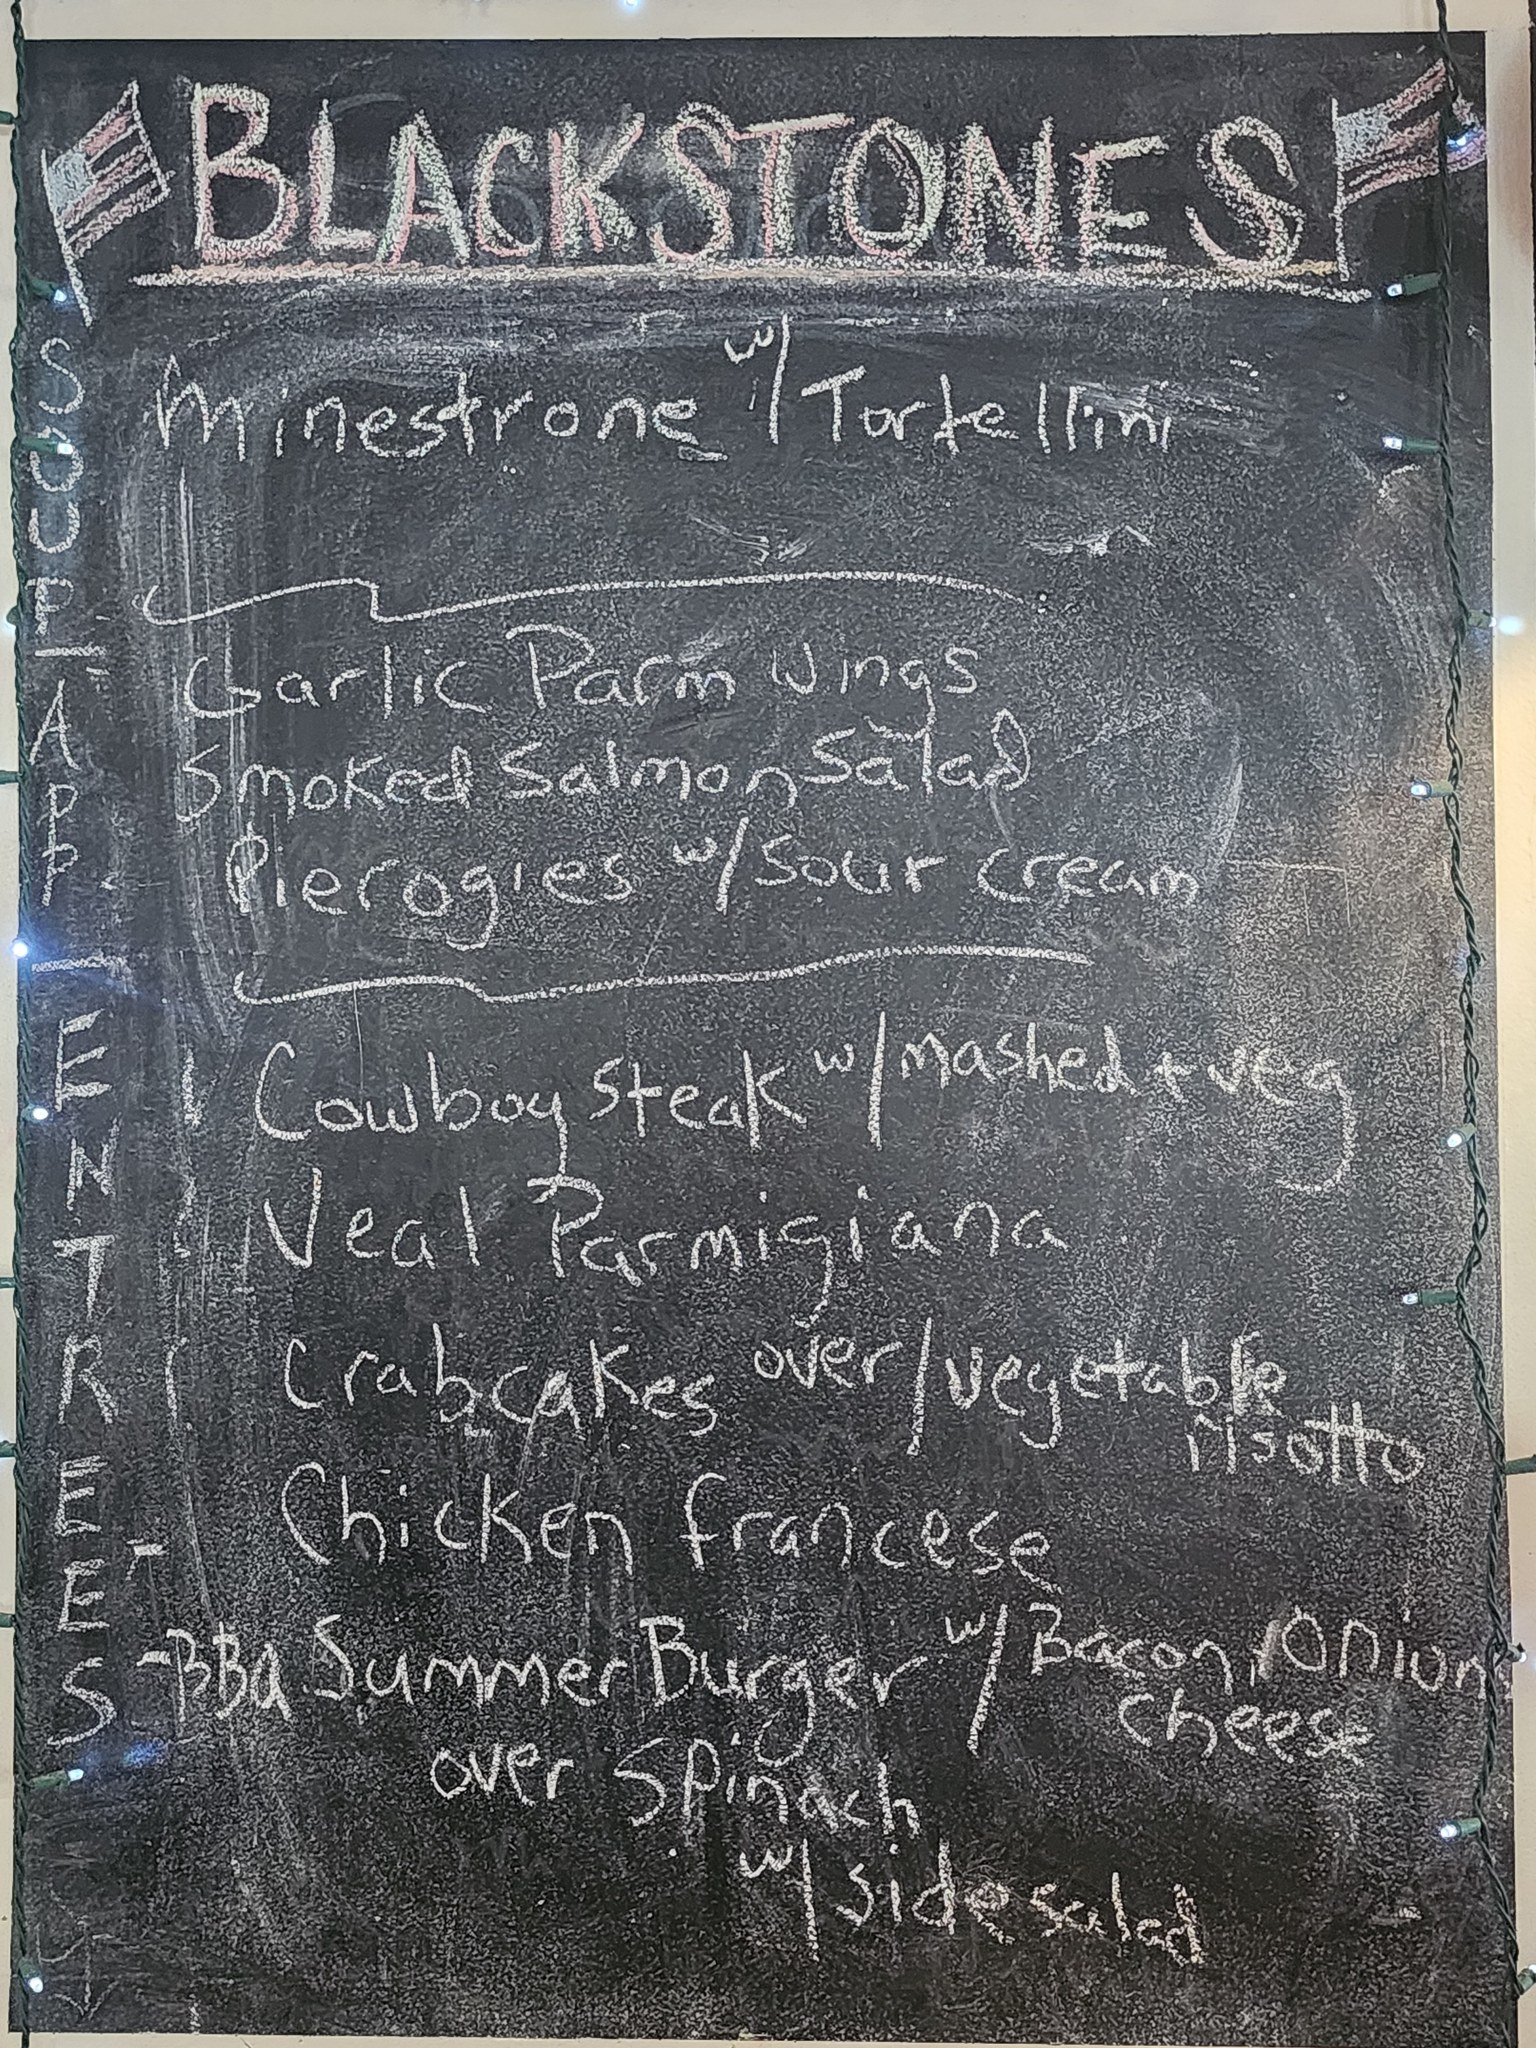 BLACKSTONES
SOUP
Minestrone w/ Tortellini
APP.
Garlic Parm wings
Smoked Salmon Salad
Pierogies w/ sour cream
ENTREES
Cowboy steak w/ mashed + veg
Veal Parmigiana
crabcakes over/vegetable
risotto
Chicken francese
-BBQ Summer Burger w/ Bacon, Onion,
cheese
over Spinach
w/ side salad